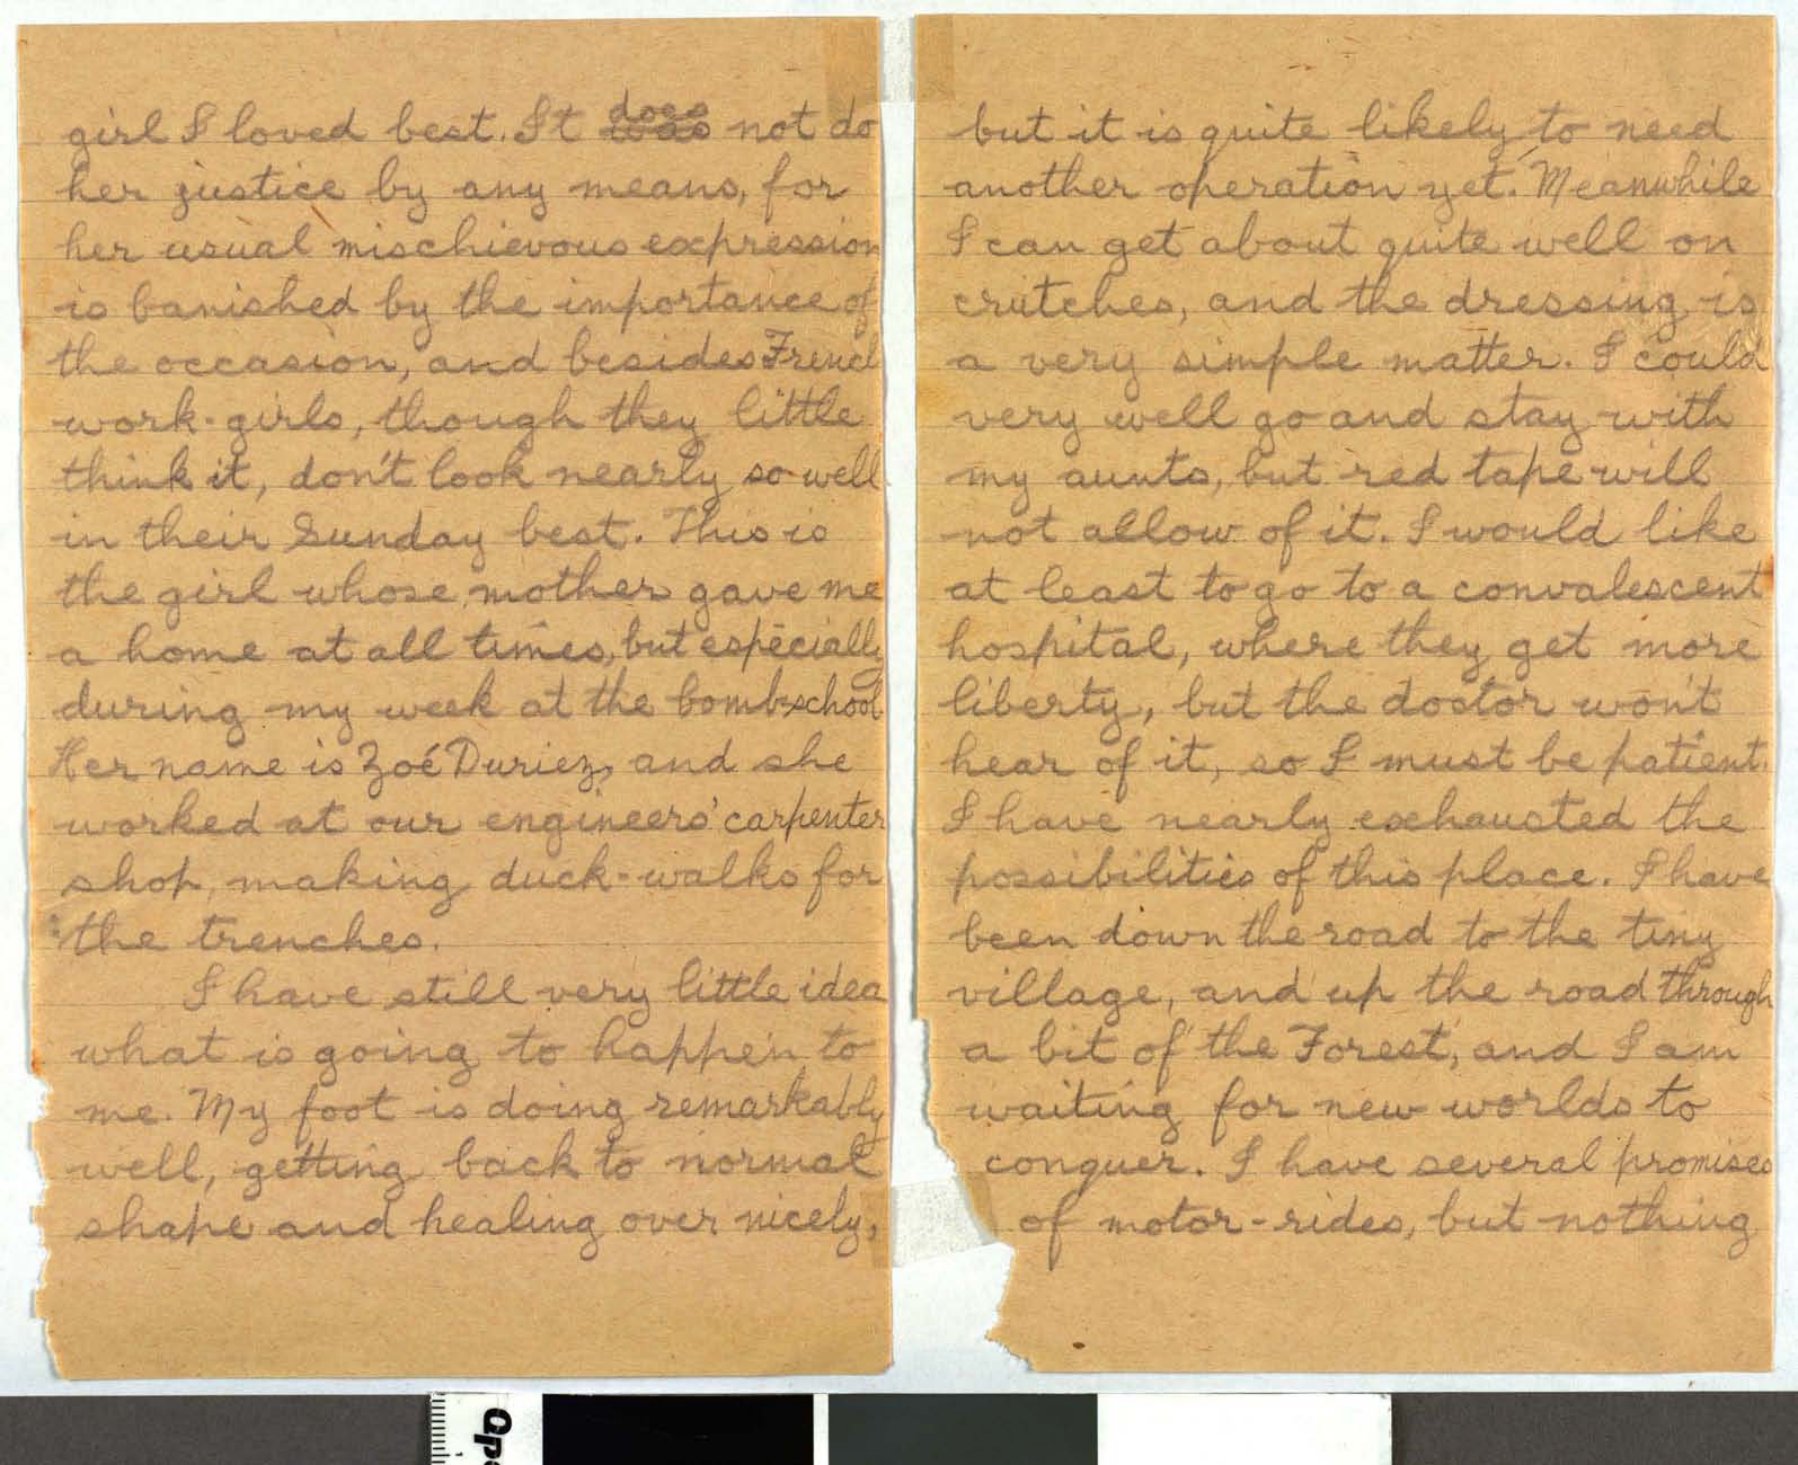 girl I loved best. It does was not do
her justice by any means, for
her usual mischievous expression
is banished by the importance of
the occasion, and besides French
work-girls, though they little
think it, don't look nearly so well
in their Sunday best. This is
the girl whose mother gave me
a home at all times, but especially
during my week at the bomb-school
Her name is Zoé Duriez, and she
worked at our engineers' carpenter
shop, making duck-walks for
the trenches.
I have still very little idea
what is going to happen to
me. My foot is doing remarkably
well, getting back to normal
shape and healing over nicely,
but it is quite likely to need
another operation yet. Meanwhile
I can get about quite well on
crutches, and the dressing is
a very simple matter. I could
very well go and stay with
my aunts, but red tape will
not allow of it. I would like
at least to go to a convalescent
hospital, where they get more
liberty, but the doctor won't
hear of it, so I must be patient.
I have nearly exhausted the
possibilities of this place. I have
been down the road to the tiny
village, and up the road through
a bit of the Forest, and I am
waiting for new worlds to
conquer. I have several promises
of motor-rides, but nothing